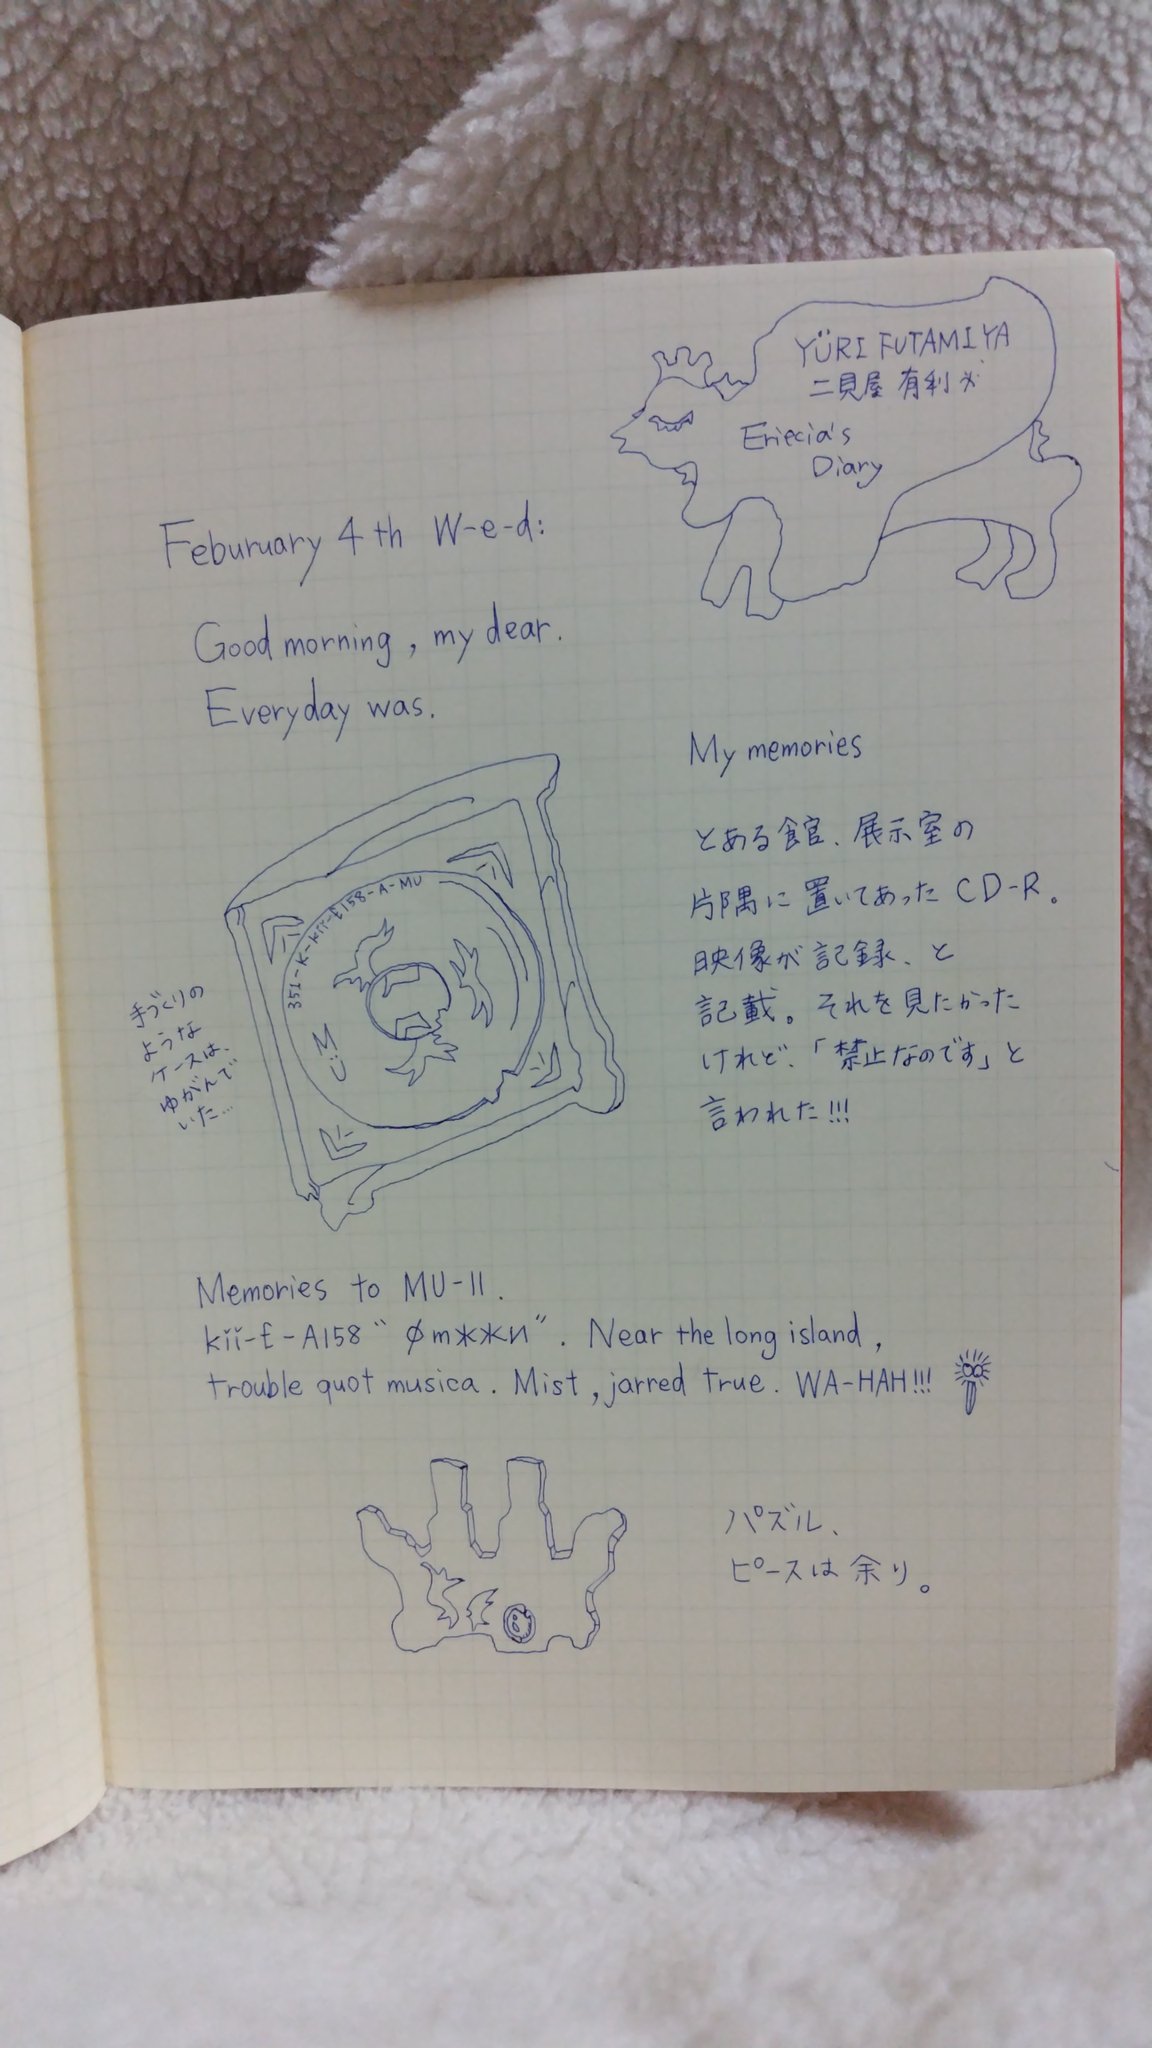 YÜRI FUTAMIYA
二貝屋 有利
Eriecia's
Diary
Feburuary 4th W-e-d:
Good morning, my dear.
Everyday was.
My memories
とある館、展示室の
片隅に置いてあったCD-R。
映像が記録、と
記載。それを見たかった
けれど、「禁止なのです」と
言われた!!!
351-K-kii-E158-A-MU
手づくりの
ような
ケースは、
ゆがんで
いた...
Memories to MU-II.
kïï-E-A158 " ØmжжИ". Near the long island,
trouble quot musica. Mist, jarred true. WA-HAH!!!
パズル、
ピースは余り。